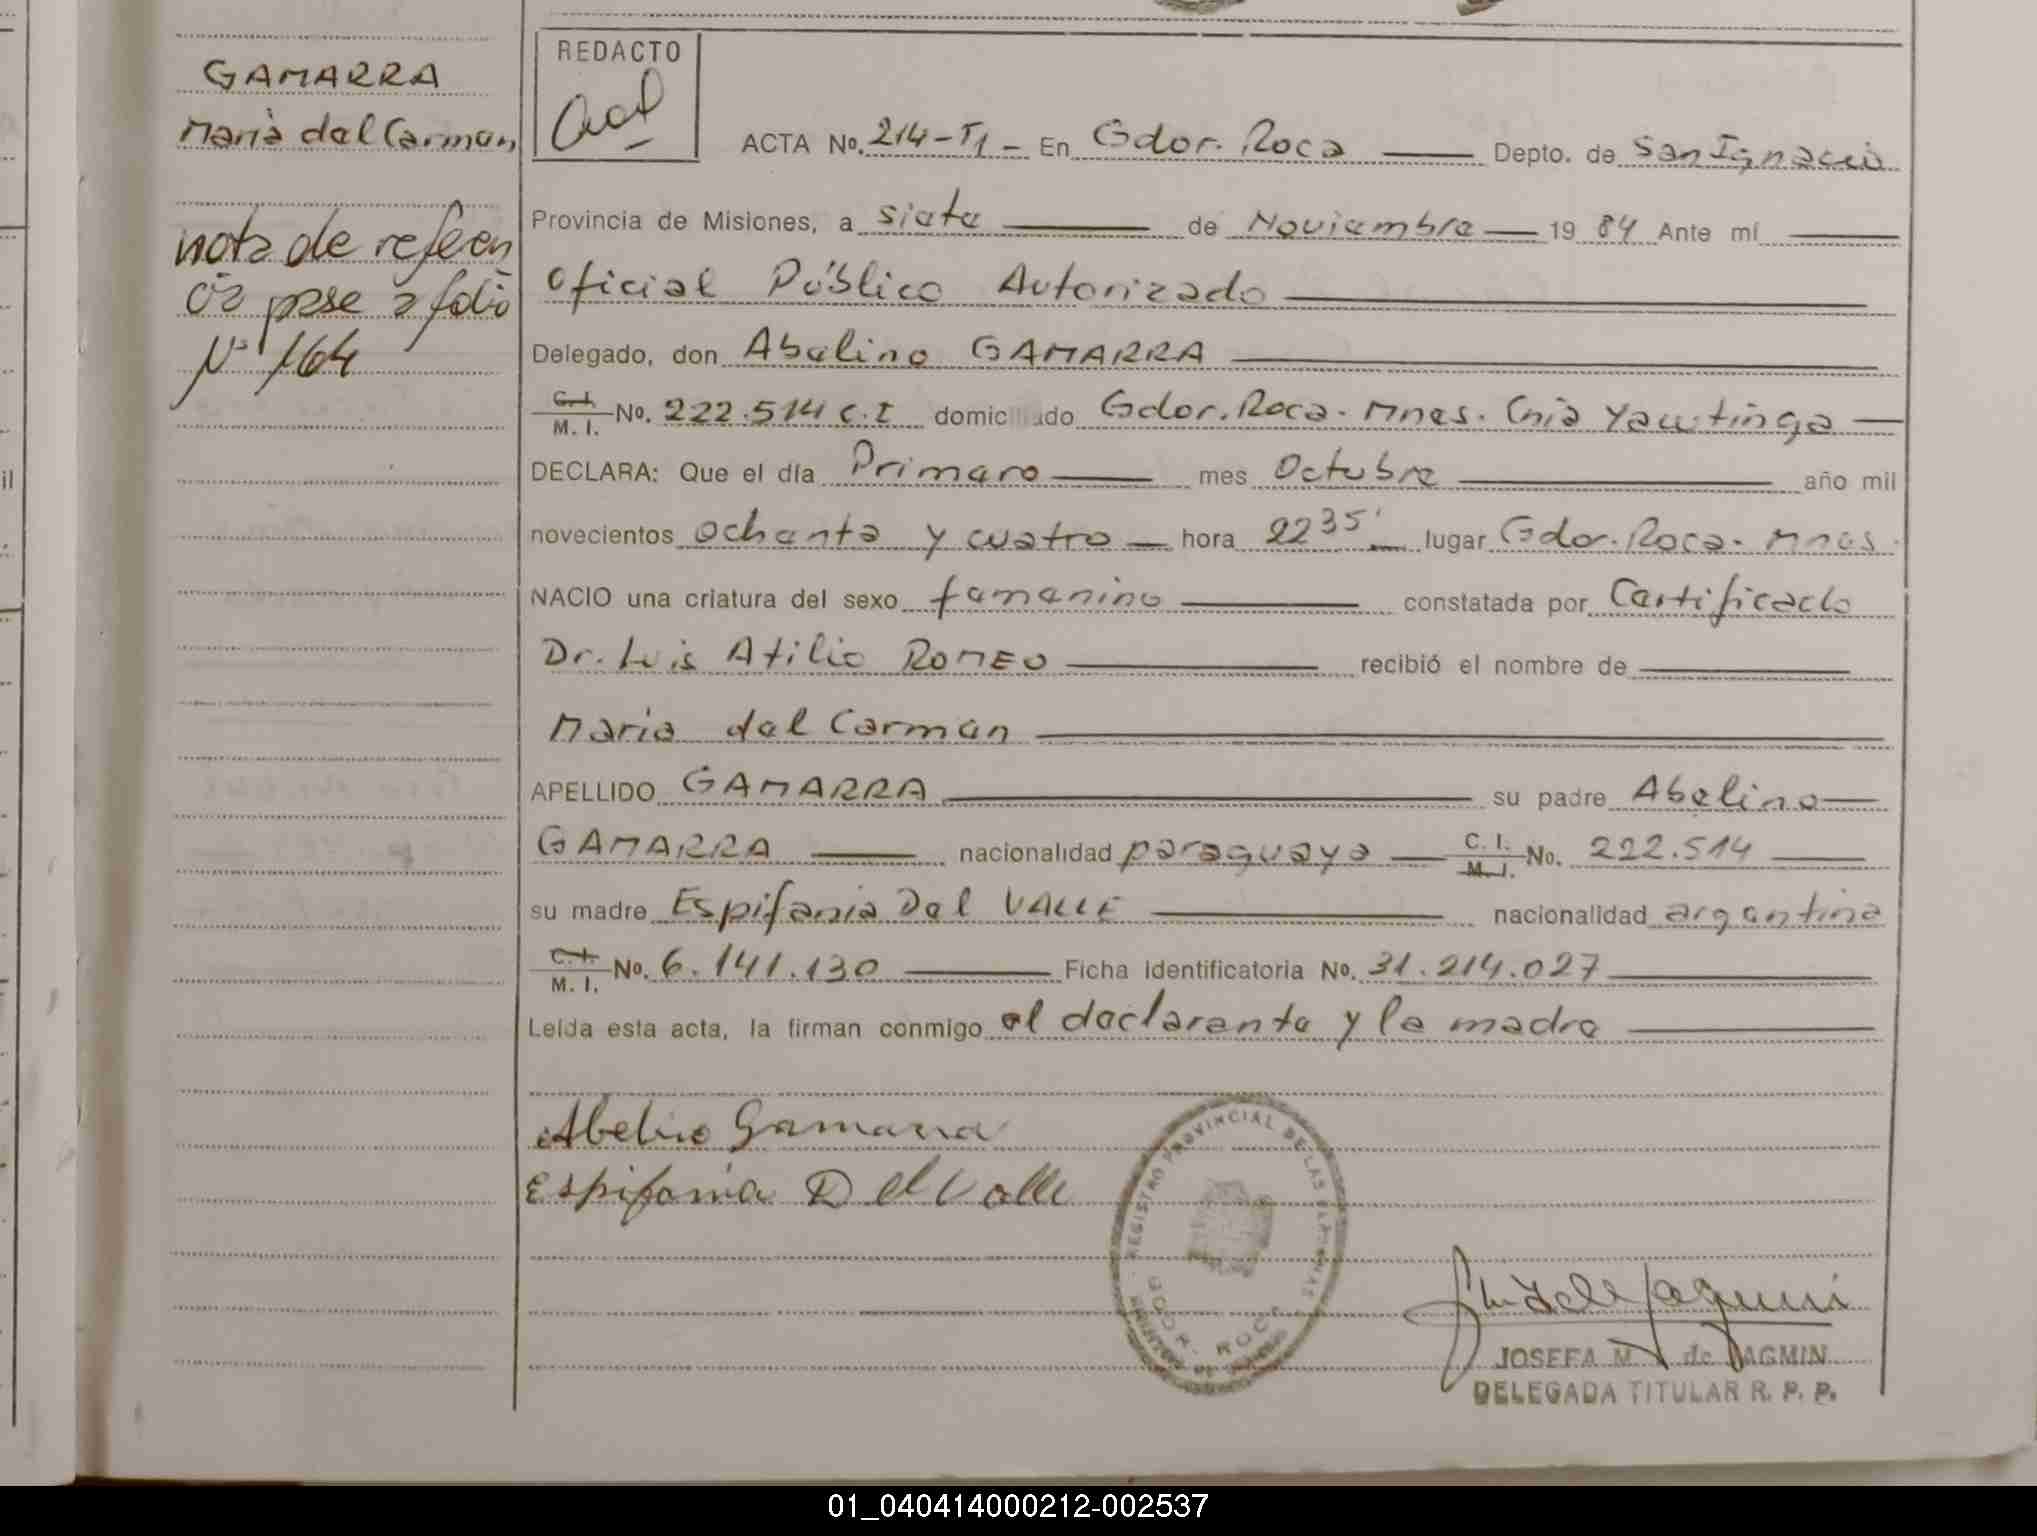 GAMARRA
Maria del Carmen
nota de referen
cia pase a folio
Nº 164
REDACTO
ACTA No. 214-T1 - En Gdor. Roca Depto. de San Ignacio
Provincia de Misiones, a siete de Noviembre 19 84 Ante mí
Oficial Público Autorizado
Delegado, don Abelino GAMARRA
C. I. M. I. No. 222.514 C.I domiciliado Gdor. Roca. Mnes. Cnia Yacutinga
DECLARA: Que el día Primero mes Octubre año mil
novecientos ochenta y cuatro hora 22 35' lugar Gdor. Roca. Mnes.
NACIO una criatura del sexo femenino constatada por Certificado
Dr. Luis Atilio ROMEO recibió el nombre de
Maria del Carmen
APELLIDO GAMARRA su padre Abelino
GAMARRA nacionalidad paraguaya C. I. M. I. No. 222.514
su madre Espifania Del VALLE nacionalidad argentina
C. I. M. I. No. 6.141.130 Ficha Identificatoria No. 31.214.027
Leída esta acta, la firman conmigo el declarante y la madre
Abelino Gamarra
Espifania Del Valle
REGISTRO PROVINCIAL DE LAS PERSONAS
GDOR. ROCA
JOSEFA M. de JAGMIN
DELEGADA TITULAR R. P. P.
01_040414000212-002537